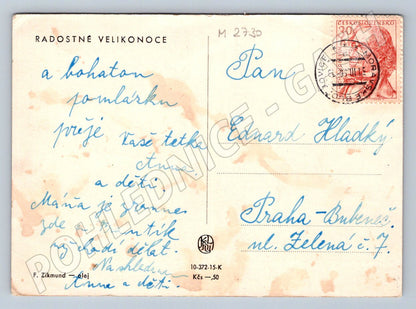 M 2730
RADOSTNÉ VELIKONOCE
a bohatou
pomlázku
přeje Vaše tetka
Anna
a děti.
Máňa je
jde
chodí dělat.
Nashledanou
Anna a děti.
F. Zikmund — olej
10-372-15-K
Kčs —,50
ČESKOSLOVENSKO
30
Pan
Eduard Hladký
Praha-Bubeneč.
ul. Zelená č. 7.
POHLEDNICE - G